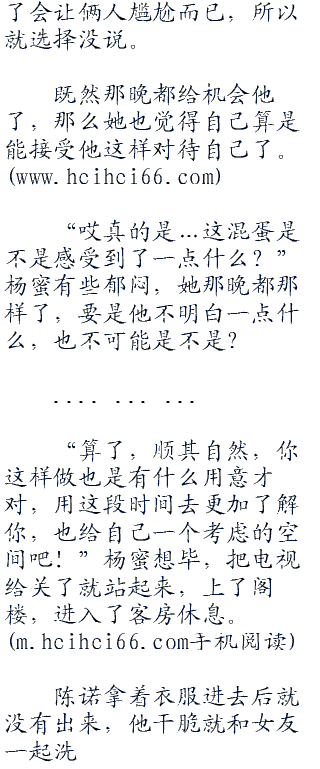 了会让俩人尴尬而已，所以
就选择没说。
既然那晚都给机会他
了，那么她也觉得自己算是
能接受他这样对待自己了。
(www.hcihci66.com)
“哎真的是...这混蛋是
不是感受到了一点什么？”
杨蜜有些郁闷，她那晚都那
样了，要是他不明白一点什
么，也不可能是不是？
.... ... ...
“算了，顺其自然，你
这样做也是有什么用意才
对，用这段时间去更加了解
你，也给自己一个考虑的空
间吧！”杨蜜想毕，把电视
给关了就站起来，上了阁
楼，进入了客房休息。
(m.hcihci66.com手机阅读)
陈诺拿着衣服进去后就
没有出来，他干脆就和女友
一起洗